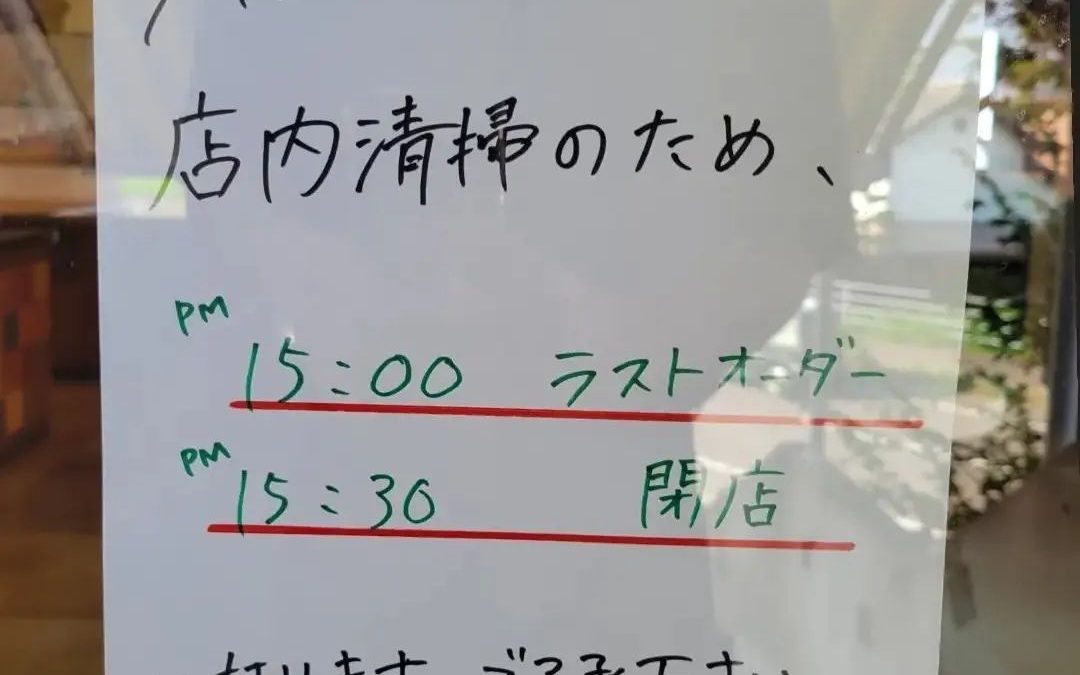 店内清掃のため、
PM
15:00 ラストオーダー
PM
15:30 閉店
ご了承下さい